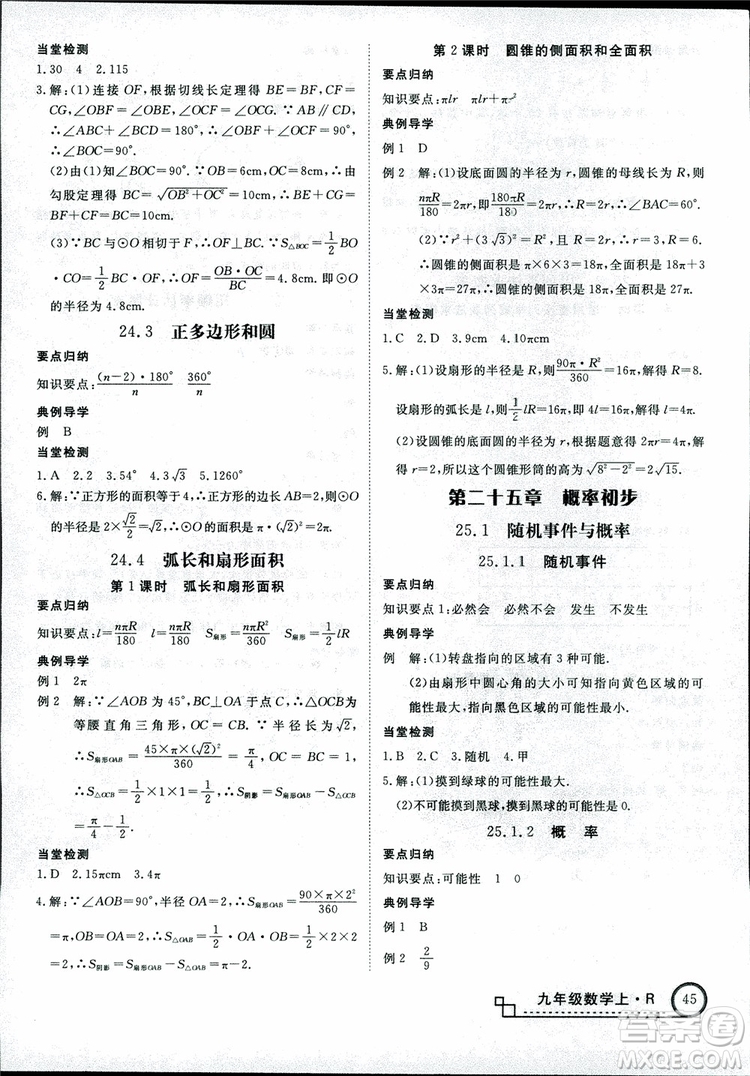 当堂检测
1.30 4 2.115
3.解:(1)连接 OF,根据切线长定理得 BE=BF,CF=
CG,∠OBF=∠OBE,∠OCF=∠OCG.∵AB∥CD,
∴∠ABC+∠BCD=180°,∴∠OBE+∠OCF=90°,
∴∠BOC=90°.
(2)由(1)知∠BOC=90°.∵OB=6cm,OC=8cm,∴由
勾股定理得 BC=√(OB²+OC²)=10cm,∴BE+CG=BC
=10cm.
(3)∵BC 与⊙O 相切于 F,∴OF⊥BC.∵S△BOC=1/2 BO
·CO=1/2 BC·OF,∴OF=(OB·OC)/BC=4.8cm.即⊙O
的半径为 4.8cm.
24.3 正多边形和圆
要点归纳
知识要点:(n-2)·180°/n 360°/n
典例导学
例 B
当堂检测
1.A 2.2 3.54° 4.3√3 5.1260°
6.解:∵正方形的面积等于 4,∴正方形的边长 AB=2,∴⊙O
的半径是 2×√2/2=√2.∴⊙O 的面积是 π·(√2)²=2π.
24.4 弧长和扇形面积
第 1 课时 弧长和扇形面积
要点归纳
知识要点:l=nπR/180 l=nπR/180 S扇形=nπR²/360 S扇形=1/2 lR
典例导学
例 1 2π
例 2 解:∵∠AOB 为 45°,BC⊥OA 于点 C,∴△OCB为
等腰直角三角形.∵OB=OA,扇形半径长为√2,
∴S扇形OAB=(45×π×(√2)²)/360=π/4.又∵OC=BC=1,
∴S△OCB=1/2×1×1=1/2,∴S阴影=S扇形OAB-S△OCB=
π/4-1/2.
当堂检测
1.D 2.15πcm 3.4π
4.解:∵∠AOB=90°,半径 OA=2,∴S扇形OAB=(90×π×2²)/360
=π,OB=OA=2,∴S△OAB=1/2 OA·OB=1/2×2×2
=2,∴S阴影=S扇形OAB-S△OAB=π-2.
第 2 课时 圆锥的侧面积和全面积
要点归纳
知识要点:πlr πlr+πr²
典例导学
例 1 D
例 2 解:(1)设底面圆的半径为 r,圆锥的母线长为 R,则
nπR/180=2πr,即180πR/180=2πr,∴R=2r,∴∠BAC=60°.
(2)∵r²+(3√3)²=R²,且 R=2r,∴r=3,R=6,
∴圆锥的侧面积是 π×6×3=18π,∴圆锥的底面积是
π×3²=9π,∴圆锥的全面积是 18π+9π=27π.
当堂检测
1.C 2.D 3.9cm 4.10πcm
5.解:(1)设扇形的半径是 R,则(90π·R²)/360=16π,解得 R=8.
设扇形的弧长是 l,则1/2 lR=16π,即 4l=16π,解得 l=4π.
(2)设圆锥的底面圆的半径是 r,则根据题意,得 2πr=4π,解
得 r=2,所以这个圆锥形筒的高为√(8²-2²)=2√15.
第二十五章 概率初步
25.1 随机事件与概率
25.1.1 随机事件
要点归纳
知识要点 1:必然会 必然不会 发生 不发生
典例导学
例 解:(1)转盘指向的区域有 3 种可能.
(2)由扇形中圆心角的大小可知指向黄色区域的可
能性最大,指向黑色区域的可能性最小.
当堂检测
1.B 2.C 3.随机 4.甲
5.解:(1)摸到绿球的可能性最大.
(2)不可能摸到黑球,摸到黑球的可能性是 0.
25.1.2 概 率
要点归纳
知识要点:可能性 1 0
典例导学
例 1 B
例 2 2/9
九年级数学上·R 45
答案圈
MXQE.COM